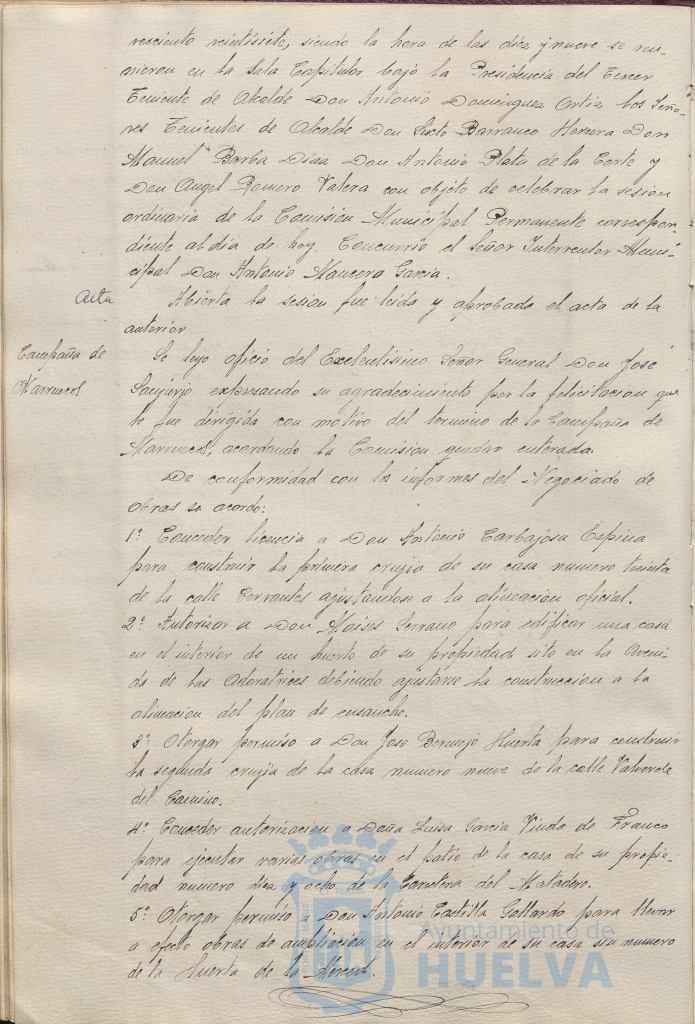 veeciento veintisiete; siendo la hora de las diez y nueve se reu-
nieron en la Sala Capitular bajo la Presidencia del Tercer
Teniente de Alcalde Don Antonio Dominguez Ortiz los Seño-
res Tenientes de Alcalde Don Sixto Barranco Herrera Don
Manuel Barba Diaz Don Antonio Plata de la Corte y
Don Angel Romero Valera con objeto de celebrar la sesion
ordinaria de la Comision Municipal Permanente correspon-
diente al dia de hoy. Concurrió el Señor Interventor Muni-
cipal Don Antonio Mancera Garcia.
Acta
Abierta la sesion fue leida y aprobada el acta de la
anterior
Campaña de
Marruecos
Se leyo oficio del Excelentisimo Señor General Don José
Sanjurjo expresando su agradecimiento por la felicitacion que
le fue dirigida con motivo del termino de la Campaña de
Marruecos, acordando la Comision quedar enterada.
De conformidad con los informes del Negociado de
Obras se acordo:
1º Conceder licencia a Don Antonio Carbajosa Espina
para construir la primera crujia de su casa numero treinta
de la calle Cervantes ajustandose a la alineacion oficial.
2º Autorizar a Don Moises Serrano para edificar una casa
en el interior de un huerto de su propiedad sito en la Aveni-
da de las Adoratrices debiendo ajustarse la construccion a la
alineacion del plan de ensanche.
3º Otorgar permiso a Don Jose Bermejo Huerta para construir
la segunda crujia de la casa numero nueve de la calle Valverde
del Camino.
4º Conceder autorizacion a Doña Luisa Garcia Viuda de Franco
para ejecutar varias obras en el patio de la casa de su propie-
dad numero diez y ocho de la Carretera del Matadero.
5º Otorgar permiso a Don Antonio Castilla Gallardo para llevar
a efecto obras de ampliacion en el interior de su casa sin numero
de la Huerta de la Merced.
Ayuntamiento de
HUELVA